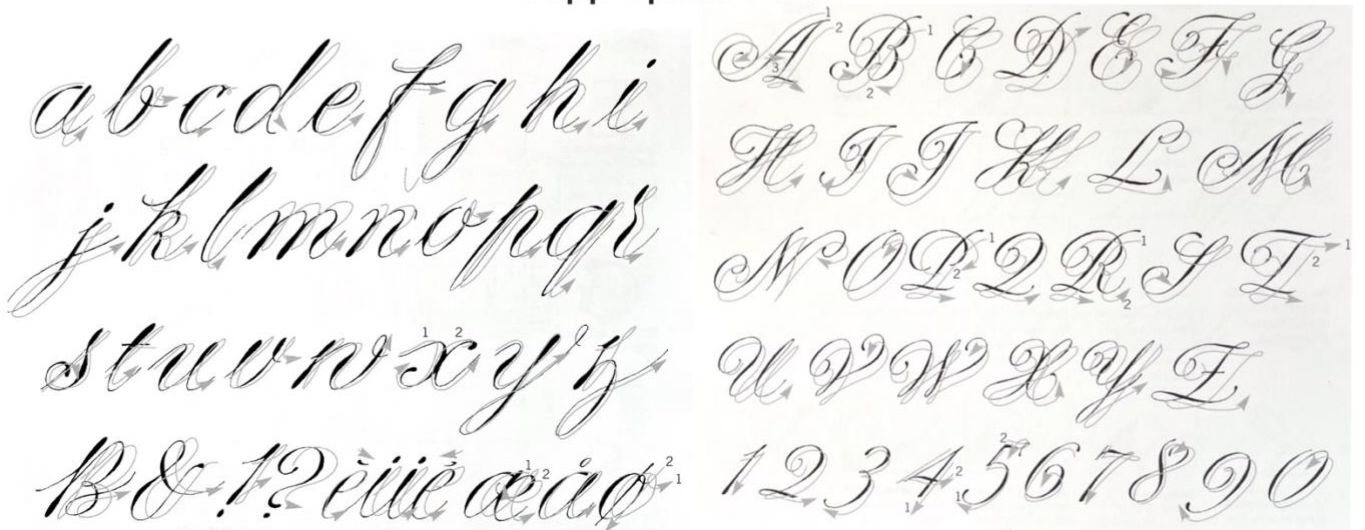 a b c d e f g h i
j k l m n o p q r
s t u v w x y z
ß & ! ? è ï ü é æ å ø
A B C D E F G
H I J K L M
N O P Q R S T
U V W X Y Z
1 2 3 4 5 6 7 8 9 0